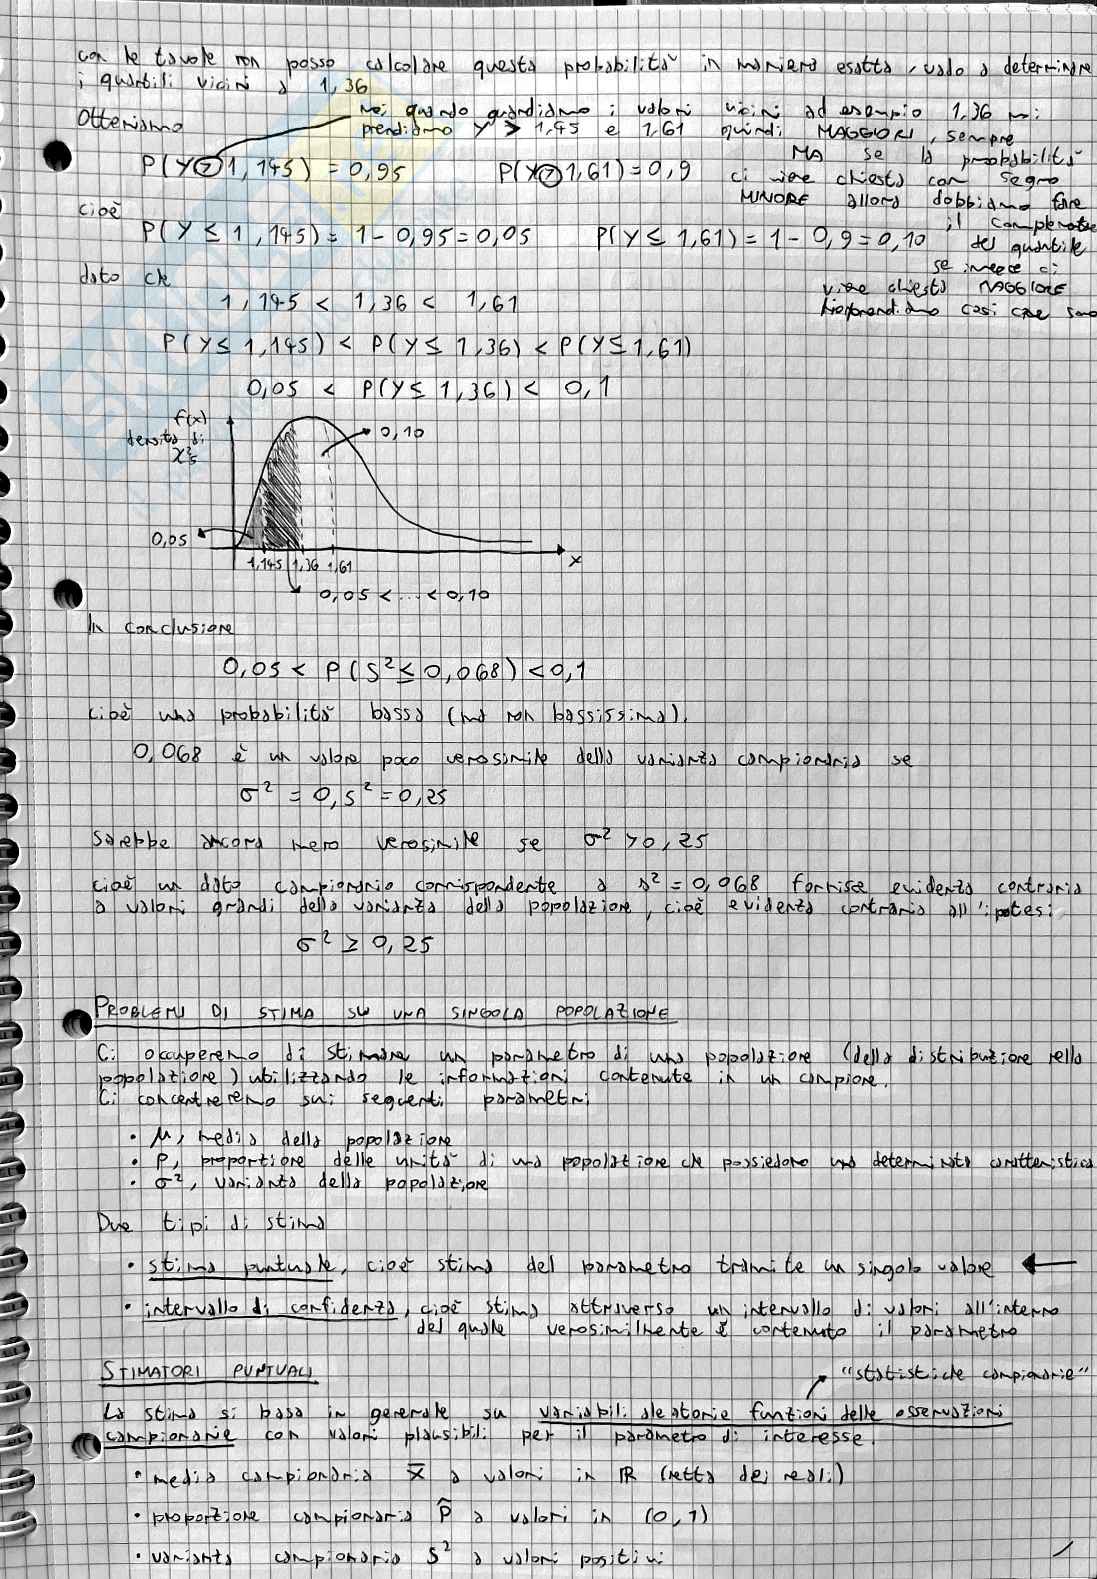 con le tavole non posso calcolare questa probabilità in maniera esatta, vado a determinare
i quartili vicini a 1,36
Noi quando guardiamo i valori vicini ad esempio 1,36 noi
Otteniamo
prendiamo Y > 1,45 e 1,61 quindi MAGGIORI, sempre
MA se la probabilità
P(Y > 1,145) = 0,95 P(Y > 1,61) = 0,9
ci viene chiesta con segno
MINORE allora dobbiamo fare
il complementare
cioè
P(Y ≤ 1,145) = 1 - 0,95 = 0,05 P(Y ≤ 1,61) = 1 - 0,9 = 0,10
del quantile
se invece ci
viene chiesto MAGGIORE
prendiamo così come sono
dato che
1,145 < 1,36 < 1,61
P(Y ≤ 1,145) < P(Y ≤ 1,36) < P(Y ≤ 1,61)
0,05 < P(Y ≤ 1,36) < 0,1
f(x)
densità di
χ²₅
0,10
0,05
1,145 1,36 1,61
x
0,05 < ... < 0,10
In conclusione
0,05 < P(S² ≤ 0,068) < 0,1
cioè una probabilità bassa (ma non bassissima).
0,068 è un valore poco verosimile della varianza campionaria se
σ² = 0,5² = 0,25
Sarebbe ancora meno verosimile se σ² > 0,25
cioè un dato campionario corrispondente a s² = 0,068 fornisce evidenza contraria
a valori grandi della varianza della popolazione, cioè evidenza contraria all'ipotesi
σ² ≥ 0,25
PROBLEMI DI STIMA SU UNA SINGOLA POPOLAZIONE
Ci occuperemo di stimare un parametro di una popolazione (della distribuzione nella
popolazione) utilizzando le informazioni contenute in un campione.
Ci concentreremo sui seguenti parametri
• μ, media della popolazione
• P, proporzione delle unità di una popolazione che possiedono una determinata caratteristica
• σ², varianza della popolazione
Due tipi di stima
• stima puntuale, cioè stima del parametro tramite un singolo valore
• intervallo di confidenza, cioè stima attraverso un intervallo di valori all'interno
del quale verosimilmente è contenuto il parametro
STIMATORI PUNTUALI
"statistiche campionarie"
La stima si basa in generale su variabili aleatorie funzioni delle osservazioni
campionarie con valori plausibili per il parametro di interesse.
• media campionaria X̄ a valori in ℝ (retta dei reali)
• proporzione campionaria P̂ a valori in (0,1)
• varianza campionaria S² a valori positivi